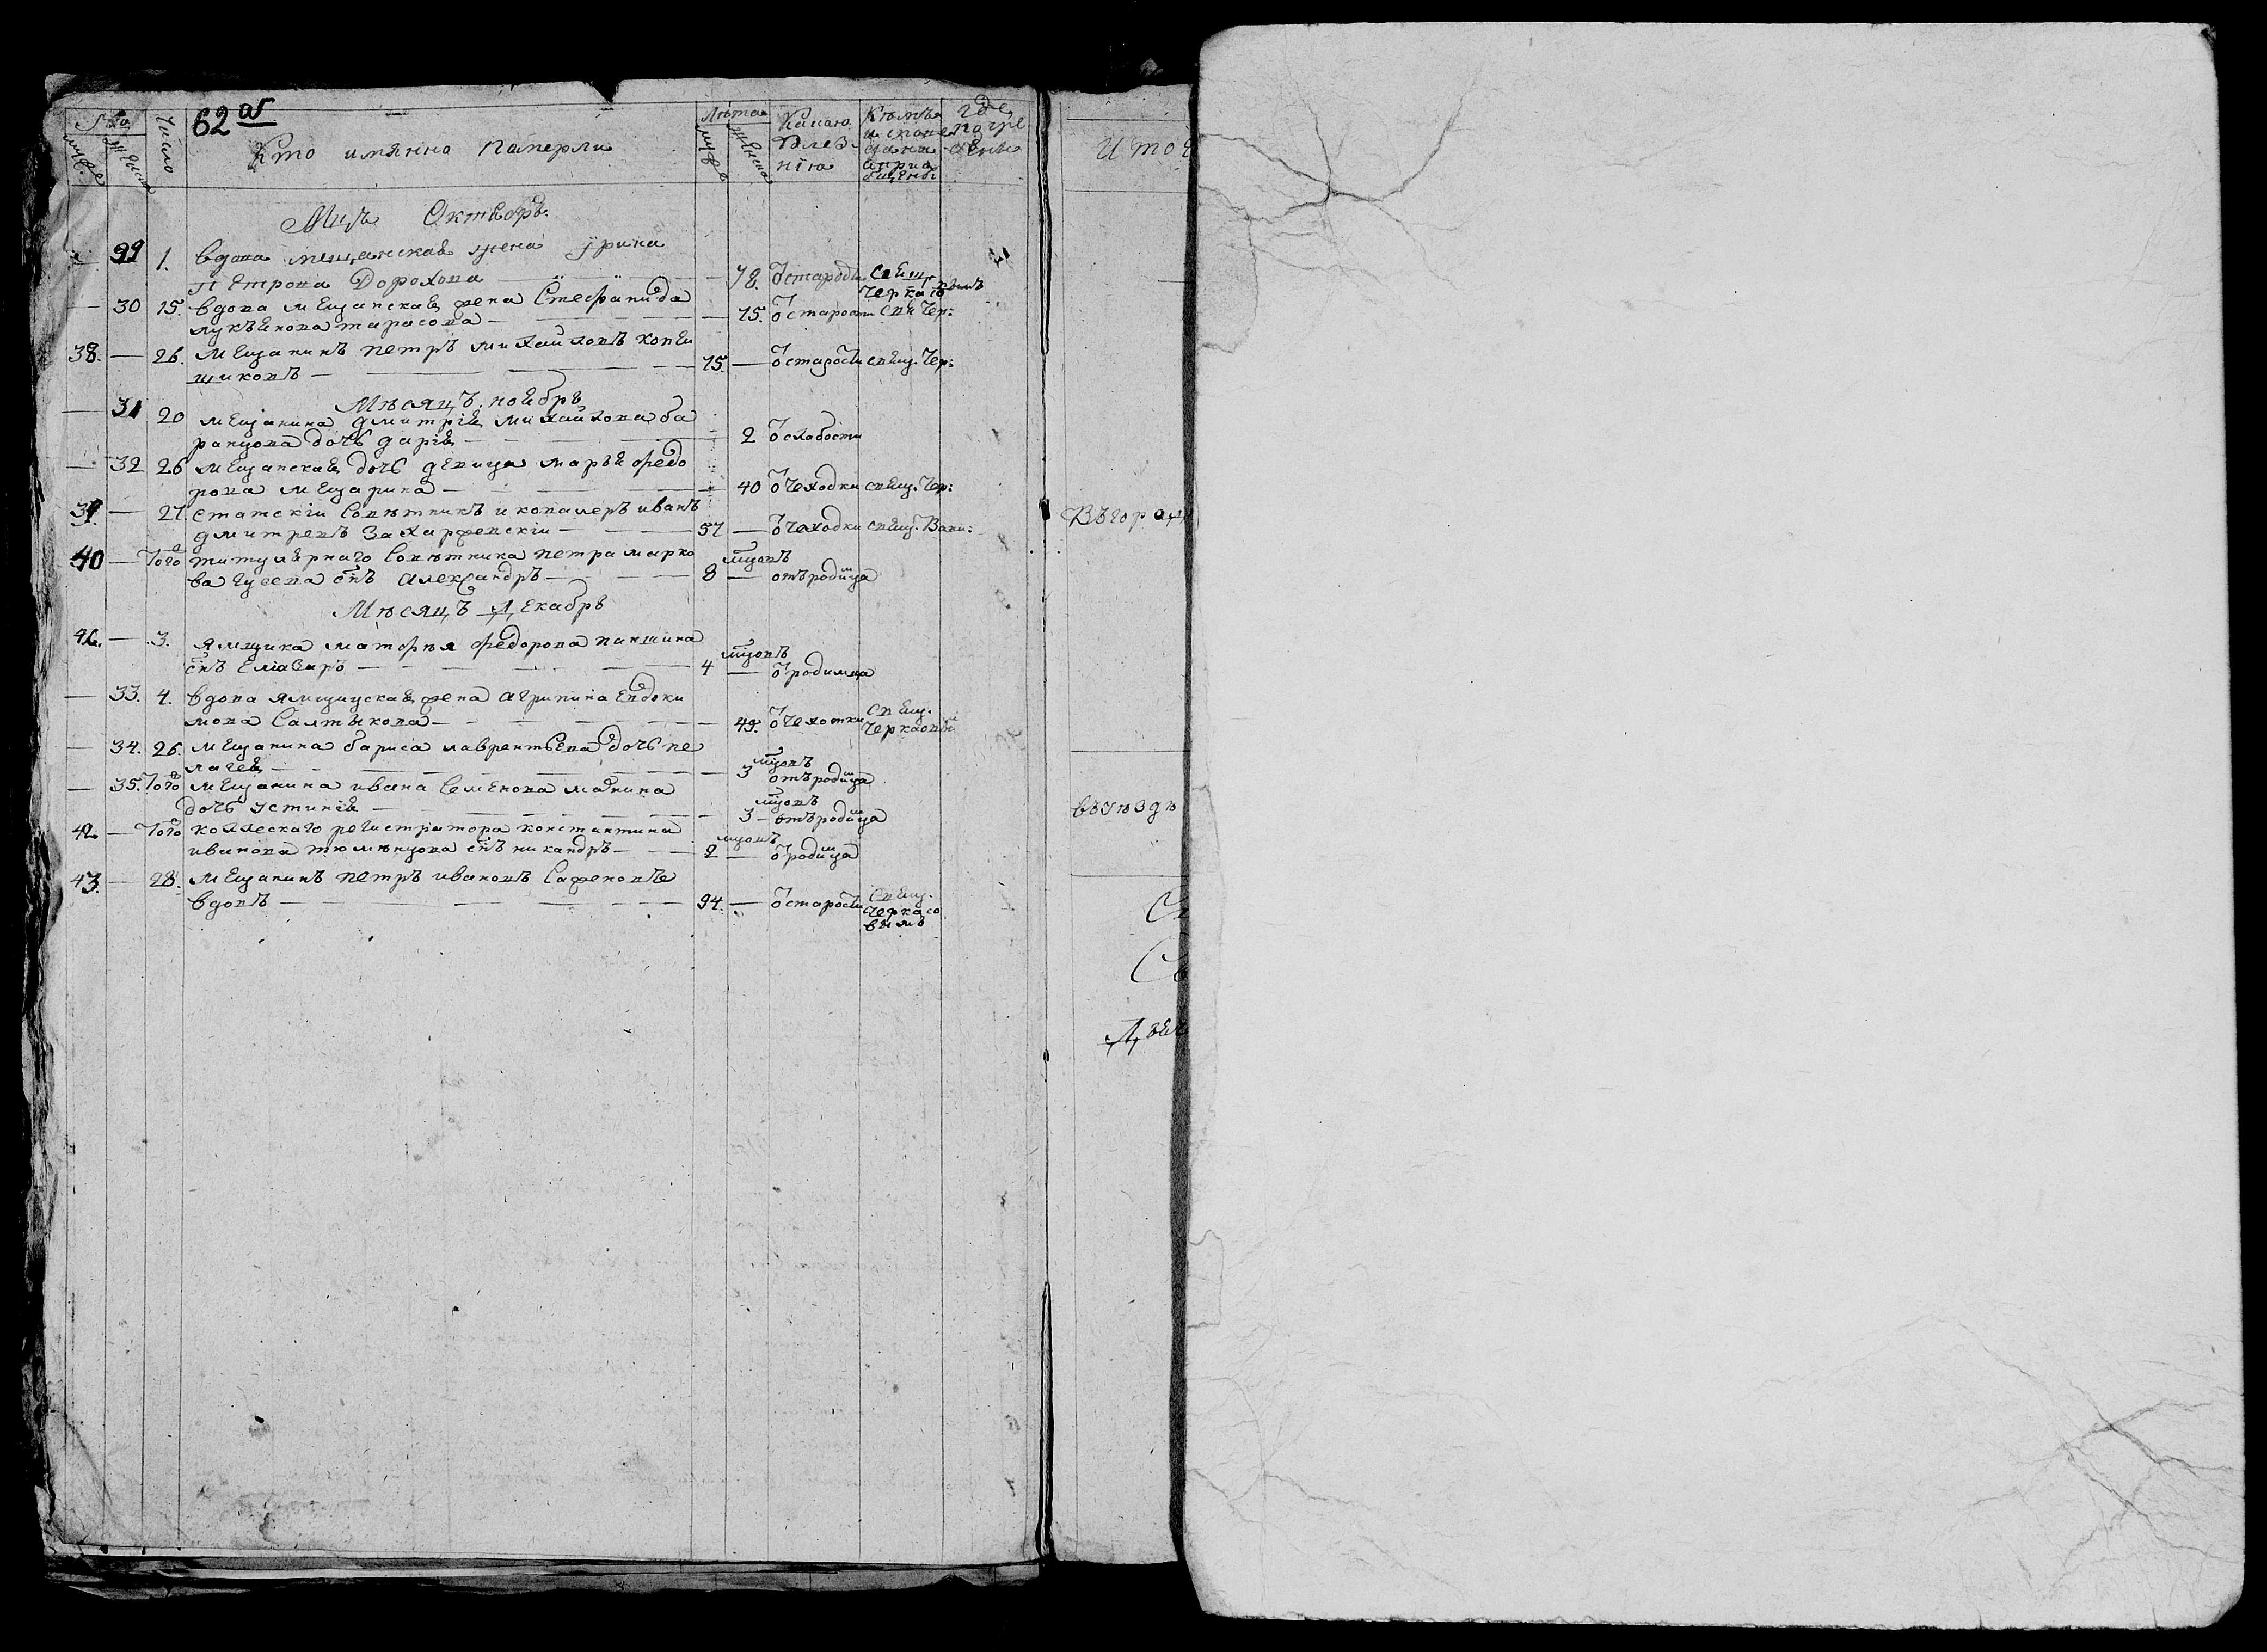 62 аⷭ
№
мужес женска
Число
Кто имянно памерли
Лѣта
муж женска
Какою болезнїю
Кѣмъ исповеданы и приобщены
где погребены
Мцъ Октябръ
29 1. вдова мещанская жена ирина
Петрова Дорохова — 78. ѿ старости свящ: Черкасовымъ
— 30 15. вдова мещанская жена Стефанида
лукьянова тарасова — 75. ѿ старости свящ Чер:
38. — 26. мещанинъ петръ михайловъ копей
щиковъ — 75. — ѿ старости свящ. Чер:
Мѣсяцъ ноябрь
— 31 20 мещанина дмитрія михайлова ба
ранцова дочь дарія — 2 ѿ слабости
— 32 26 мещанская дочь девица марья федо
рова мещерина — 40 ѿ чеходки свящ. Чер:
39. — 27. статскїи советникъ и кавалеръ иванъ
дмитревъ Захаржевскїи — 57 — ѿ чаходки свящ. Вани:
40 — Того титулярнаго советника петра марко
ва гусева снъ александръ — 8 — младенъ отъ родимца
Мѣсяцъ Декабрь
41. — 3. Ямщика матфея федорова паншина
снъ Елиазаръ — 4 — ѿ родимца
— 33. 4. вдова ямщицкая жена агрипина евдоки
мова Салтыкова — 49. ѿ чехотки свящ. Черкасовы
— 34. 26. мещанина бариса лаврентьева дочь пе
лагея — 3 отъ родимца
— 35. Того мещанина ивана семенова манина
дочь устинія — 3 — отъ родимца
42 — Того коллескаго регистратора константина
иванова тюменцова снъ никандръ — 2 — ѿ родимца
43. — 28. мещанинъ петръ ивановъ Сафеновъ
вдовъ — 94. — ѿ старости свящ. черкасо
вымъ
Итог
Въ гора
въ уезде
Св